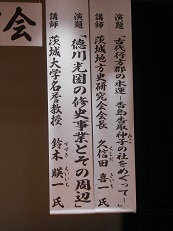 会
演題 「古代行方郡の水運 ―香島香取神子の社をめぐって―」
講師 茨城地方史研究会会長 久信田 喜一 氏
演題 「徳川光圀の修史事業とその周辺」
講師 茨城大学名誉教授 鈴木 暎一 氏